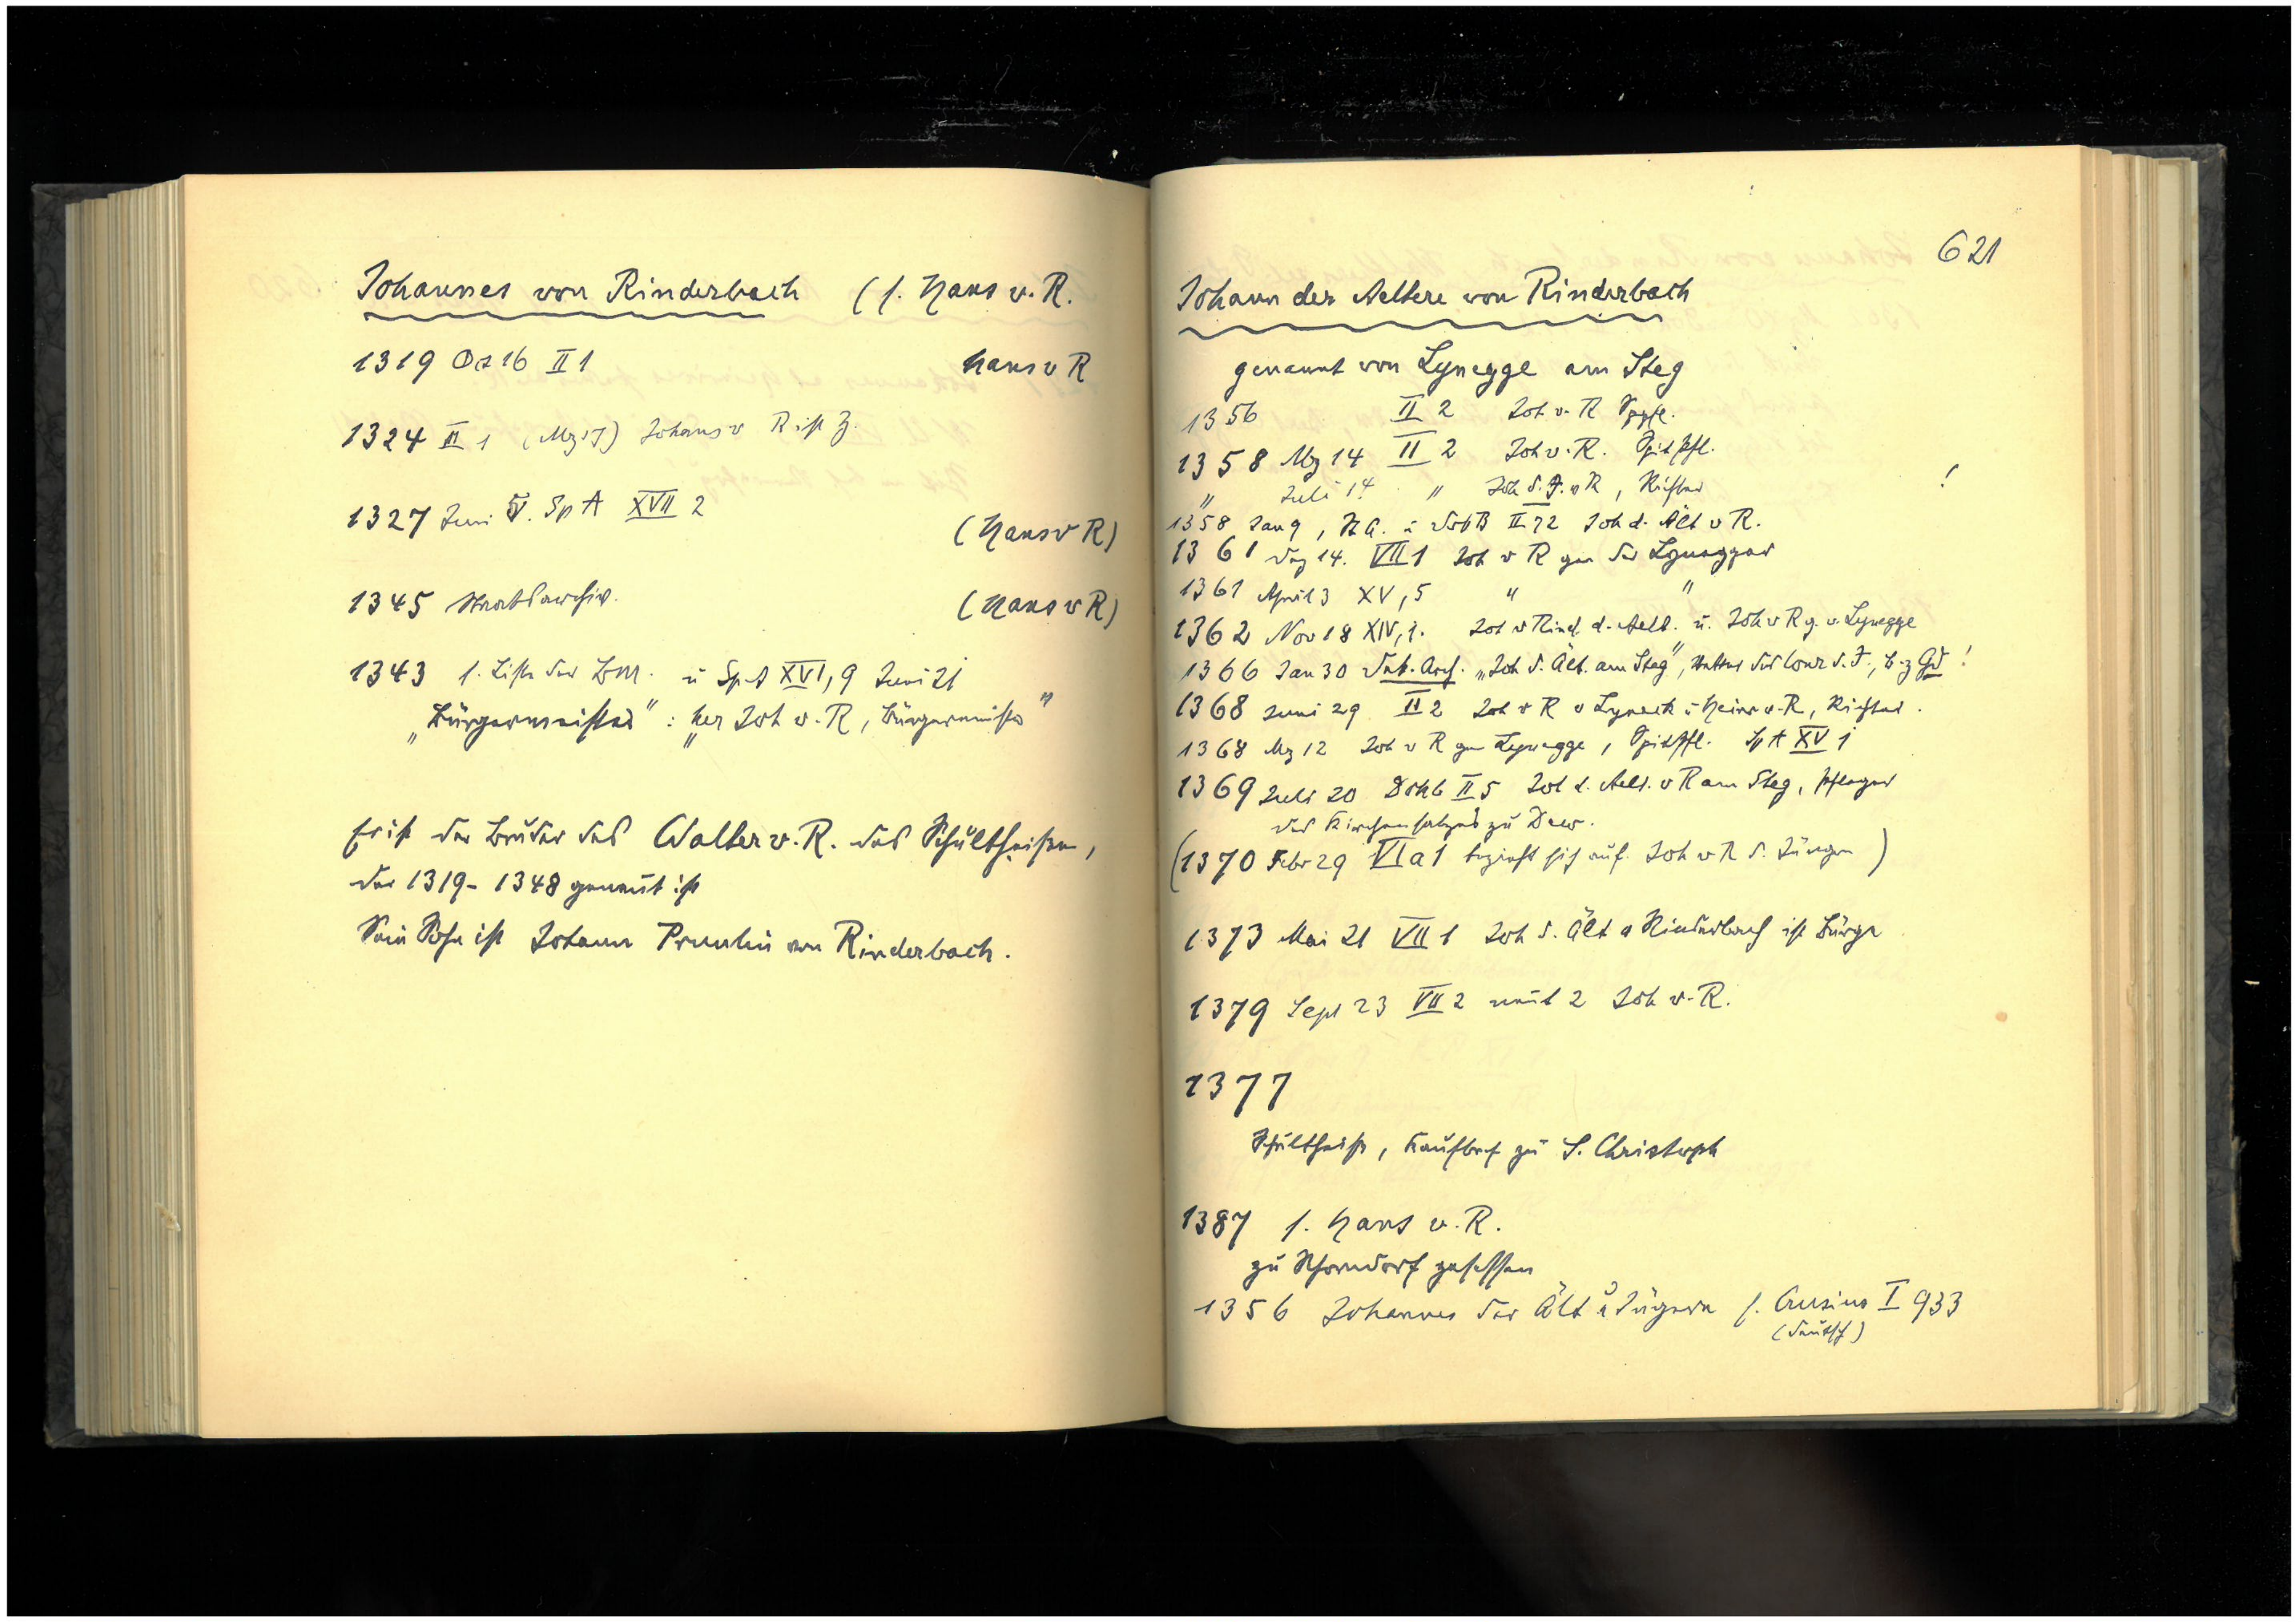 Johannes von Rinderbach (s. Hans v. R.
1319 Oz 16 II 1 Hans v R
1324 II 1 Johans v R ist Z.
1327 Juni V. Sp A XVII 2
(Hans v R)
1345 Staatsarchiv.
(Hans v R)
1343 s. Liste der Bm. u SpA XVI, 9 Juni 21
„Bürgermeister" : „her Joh v. R, Bürgermeister"
Er ist der Bruder des Walter v. R. des Schultheißen,
der 1319-1348 genannt ist
Sein Sohn ist Johann von Rinderbach.
621
Johann der Aeltere von Rinderbach
genannt von Lynegge am Steg
1356 II 2 Joh v. R Sppfl.
1358 Mz 14 II 2 Joh v. R. Spitpfl.
" Juli 14 " Joh d. J. v R, Richter !
1358 Jan 9, StA. u II 72 Joh d. Ält v R.
1361 Dez 14. VII 1 Joh v R gen der Lynegger
1361 April 3 XV, 5 " "
1362 Nov 18 XIV, 1. Joh v Rind. d. Aelt. u. Joh v R g. v. Lynegge
1366 Jan 30 Arch. „Joh d. Ält. am Steg", Vetter des Conr d. J., B. z Gd !
1368 Juni 29 II 2 Joh v R v Lyneck u Heinr v. R, Richter.
1368 Mz 12 Joh v R gen Lynegge, Spitpfl. Sp A XV 1
1369 Juli 20 II 5 Joh d. Aelt. v R am Steg, Pfleger
des Kirchensatzes zu Dew.
(1370 Febr 29 VI a 1 bezieht sich auf Joh v R d. Jüngern)
1373 Mai 21 VII 1 Joh d. Ält v Rinderbach ist Bürge
1379 Sept 23 VII 2 nennt 2 Joh v. R.
1377
Schultheiß, Kaufbrf zu S. Christoph
1387 s. Hans v. R.
zu Schorndorf gesessen
1356 Johannes der Ält u Jüngere s. Crusius I 933
(deutsch)